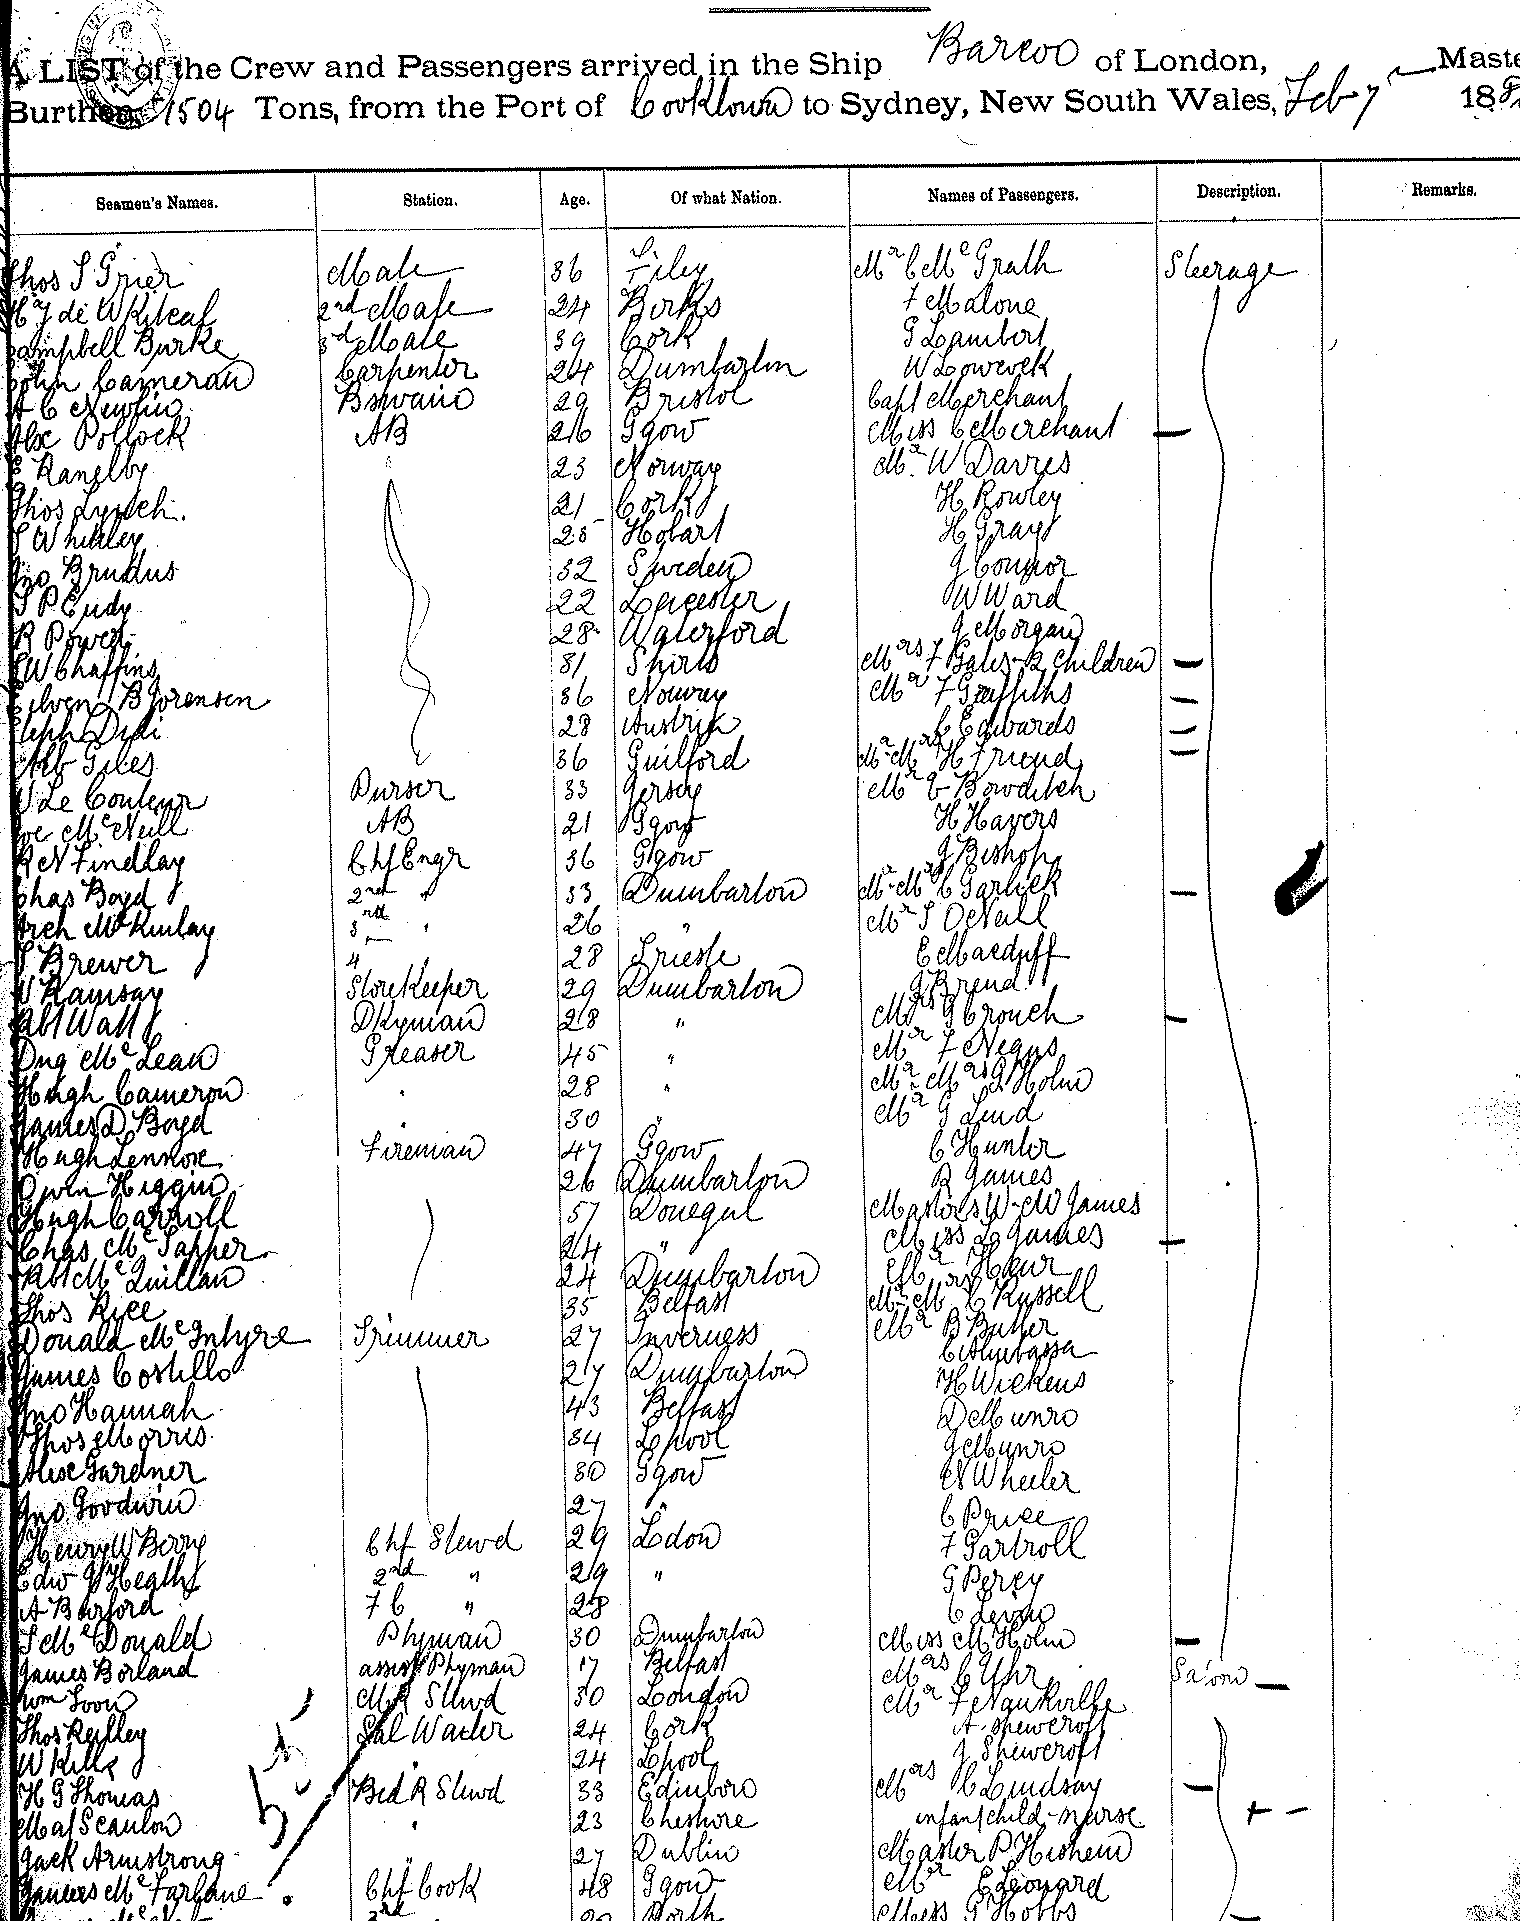 A LIST of the Crew and Passengers arrived in the Ship Barcoo of London, Maste
Burthen, 1504 Tons, from the Port of Cooktown to Sydney, New South Wales, Feb 7 18
Seamen's Names. Station. Age. Of what Nation. Names of Passengers. Description. Remarks.
Thos S Grier Mate 36 Filey Mr C McGrath Steerage
2nd Mate 24 Berks F Malone
Campbell Burke 3rd Mate 39 Cork G Lambert
John Cameron Carpenter 24 Dumbarton W
A C Newlin 29 Bristol Capt Merchant
Alex Pollock AB 26 Ggow Miss C Merchant
23 Norway Mr W Davies
Thos Lynch. 21 Cork H Rowley
25 Hobart H Gray
Jno Brudus 32 Sweden J Connor
22 Leicester W Ward
R Power 28 Waterford J Morgan
W Chaffins 31 Mrs F children
Bjorensen 36 Norway Mr F Griffiths
28 Austria C Edwards
Alb Giles 36 Guilford Mr Mrs H Friend
W Le Couteur Purser 33 Jersey Mr Bowditch
Joe McNeill AB 21 Ggow H Hayers
R N Findlay Chf Engr 36 Ggow J Bishop
Chas Boyd 2nd " 33 Dumbarton Mr Mrs C Garlick
Arch McKinlay 3rd " 26 " Mr S ONeill
S Brewer 4 28 Trieste E Macduff
W Ramsay Storekeeper 29 Dumbarton J
Rbt Watt DKyman 28 " Mrs G Crouch
Dug McLean Greaser 45 " Mr F Negus
Hugh Cameron " 28 " Mr Mrs Holm
James D Boyd 30 " Mr G Lind
Hugh Lennox Fireman 47 Ggow C Hunter
Owen Higgin 26 Dumbarton R James
Hugh Carroll 57 Donegal Masters W M James
Chas 24 " Miss L James
Rbt McQuillan 24 Dumbarton Mr
Thos Rice 35 Belfast Mr Mrs C Russell
Donald McIntyre Trimmer 27 Inverness Mr B Butler
James Costillo 27 Dumbarton C
Jno Hannah 43 Belfast H Wickens
Thos Morris 34 Lpool D Munro
Alex Gardner 30 Ggow J Munro
Jno Goodwin 27 " N Wheeler
C Price
Henry W Berry Chf Stewd 29 Ldon F Gartroll
Edw J Heath 2nd " 29 " G Percy
A Burford F C " 28 C
S McDonald Pkyman 30 Dumbarton Miss M Holm
James Borland assist Pkyman 17 Belfast Mrs C Uhr Saloon
Wm Toon MR Stewd 30 London Mr F Nankville
Thos Reilley Sal Waiter 24 Cork A Shewcroft
W Kills 24 Lpool J Shewcroft
H G Thomas Bed R Stewd 33 Edinboro Mrs C Lindsay
Scanlon " 23 Cheshire infant child nurse
Jack Armstrong " 27 Dublin Master P
James McFarlane Chf Cook 48 Ggow Mr E Leonard
Miss G Hobbs